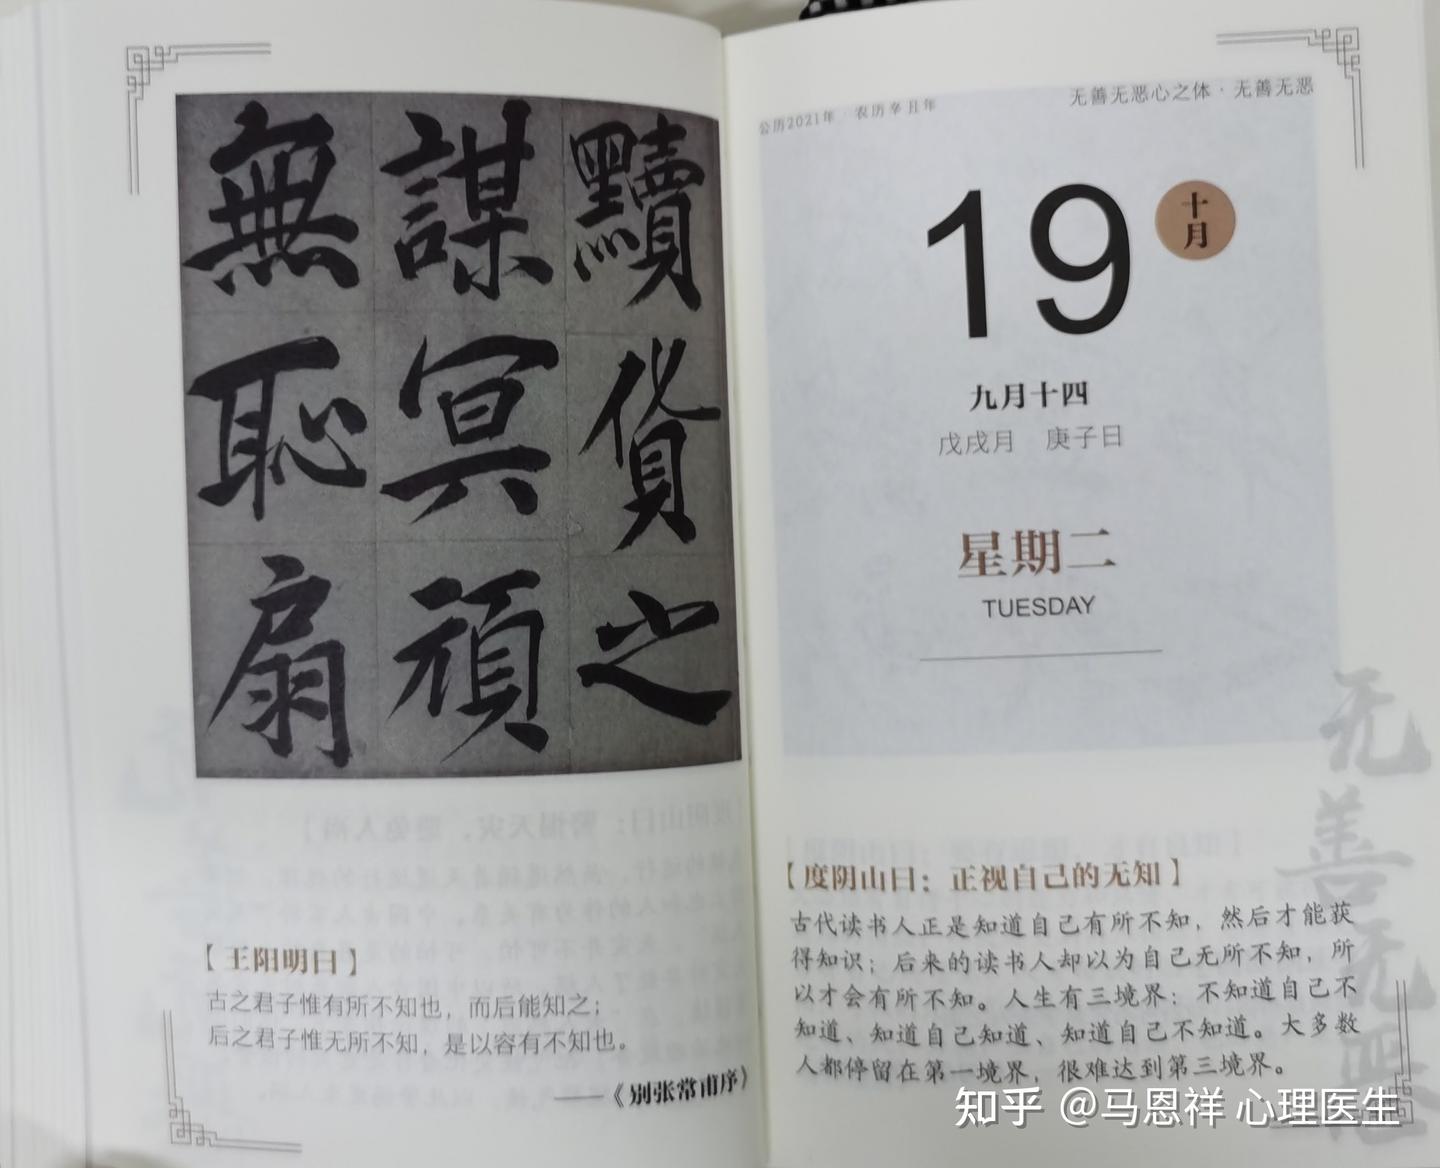 黷貨之
謀冥頑
無恥扇
【王阳明曰】
古之君子惟有所不知也，而后能知之；
后之君子惟无所不知，是以容有不知也。
——《别张常甫序》
公历2021年·农历辛丑年
无善无恶心之体·无善无恶
19
十月
九月十四
戊戌月 庚子日
星期二
TUESDAY
【度阴山曰：正视自己的无知】
古代读书人正是知道自己有所不知，然后才能获
得知识；后来的读书人却以为自己无所不知，所
以才会有所不知。人生有三境界：不知道自己不
知道、知道自己知道、知道自己不知道。大多数
人都停留在第一境界，很难达到第三境界。
无善无恶
知乎 @马恩祥 心理医生